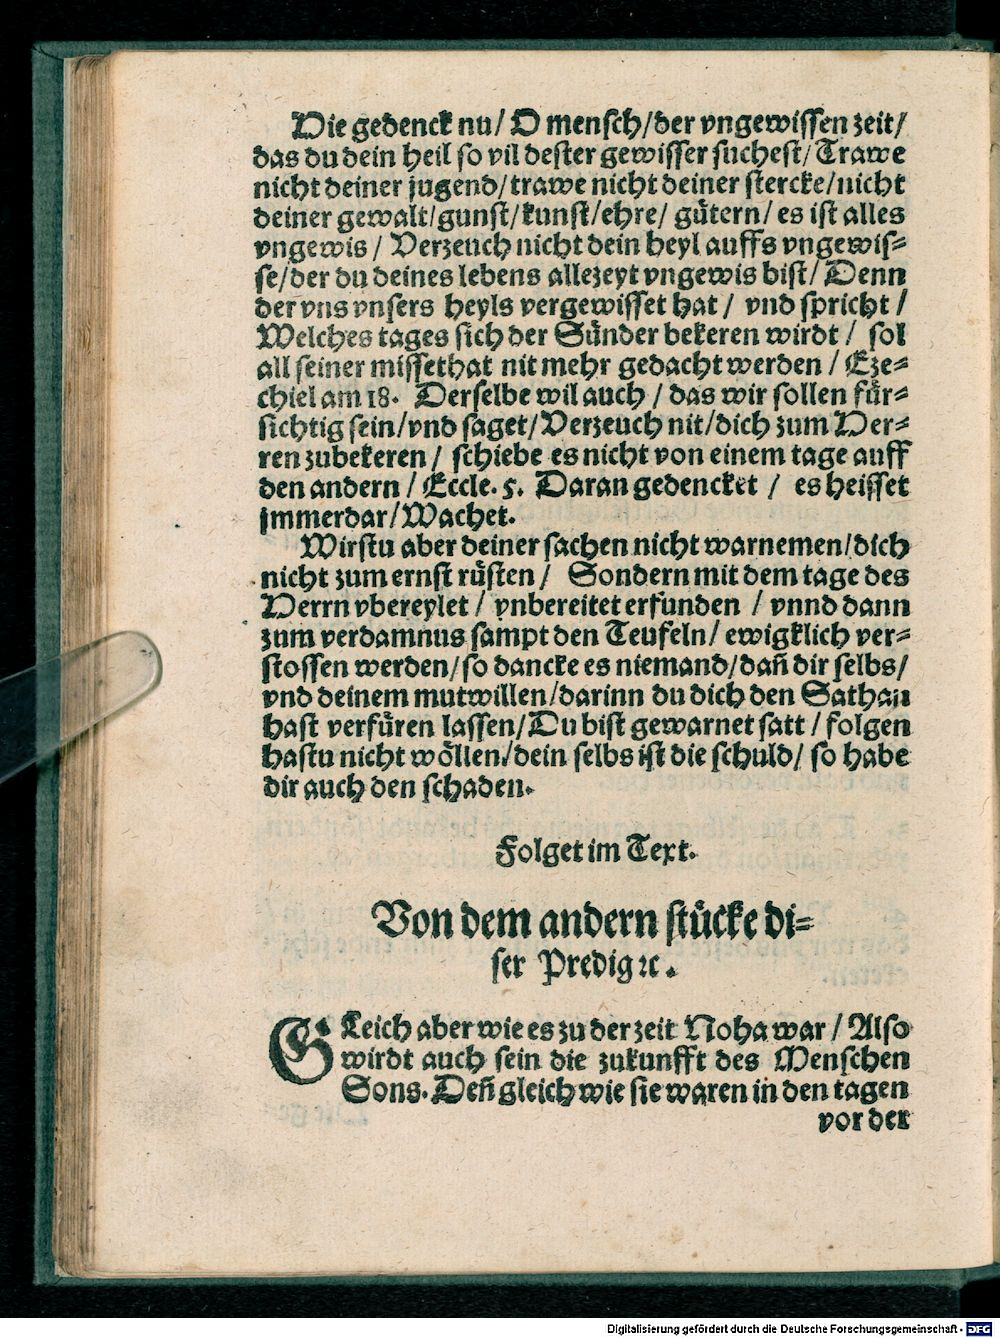 Hie gedenck nu/ O mensch/der vngewissen zeit/
das du dein heil so vil dester gewisser suchest/Trawe
nicht deiner jugend/trawe nicht deiner stercke/nicht
deiner gewalt/gunst/kunst/ehre/ gütern/ es ist alles
vngewis / Verzeuch nicht dein heyl auffs vngewis=
se/der du deines lebens allezeyt vngewis bist/ Denn
der vns vnsers heyls vergewisset hat / vnd spricht /
Welches tages sich der Sünder bekeren wirdt / sol
all seiner missethat nit mehr gedacht werden / Eze=
chiel am 18. Derselbe wil auch / das wir sollen für=
sichtig sein/vnd saget/Verzeuch nit/dich zum Her=
ren zubekeren / schiebe es nicht von einem tage auff
den andern / Eccle. 5. Daran gedencket / es heisset
jmmerdar/Wachet.
Wirstu aber deiner sachen nicht warnemen/dich
nicht zum ernst rüsten / Sondern mit dem tage des
Herrn vbereylet / vnbereitet erfunden / vnnd dann
zum verdamnus sampt den Teufeln/ ewigklich ver=
stossen werden/so dancke es niemand/dañ dir selbs/
vnd deinem mutwillen/darinn du dich den Sathan
hast verfüren lassen/Du bist gewarnet satt / folgen
hastu nicht wöllen/dein selbs ist die schuld/ so habe
dir auch den schaden.
Folget im Text.
Von dem andern stücke di=
ser Predig ⁊c.
GLeich aber wie es zu der zeit Noha war / Also
wirdt auch sein die zukunfft des Menschen
Sons. Deñ gleich wie sie waren in den tagen
vor der
Digitalisierung gefördert durch die Deutsche Forschungsgemeinschaft - DFG